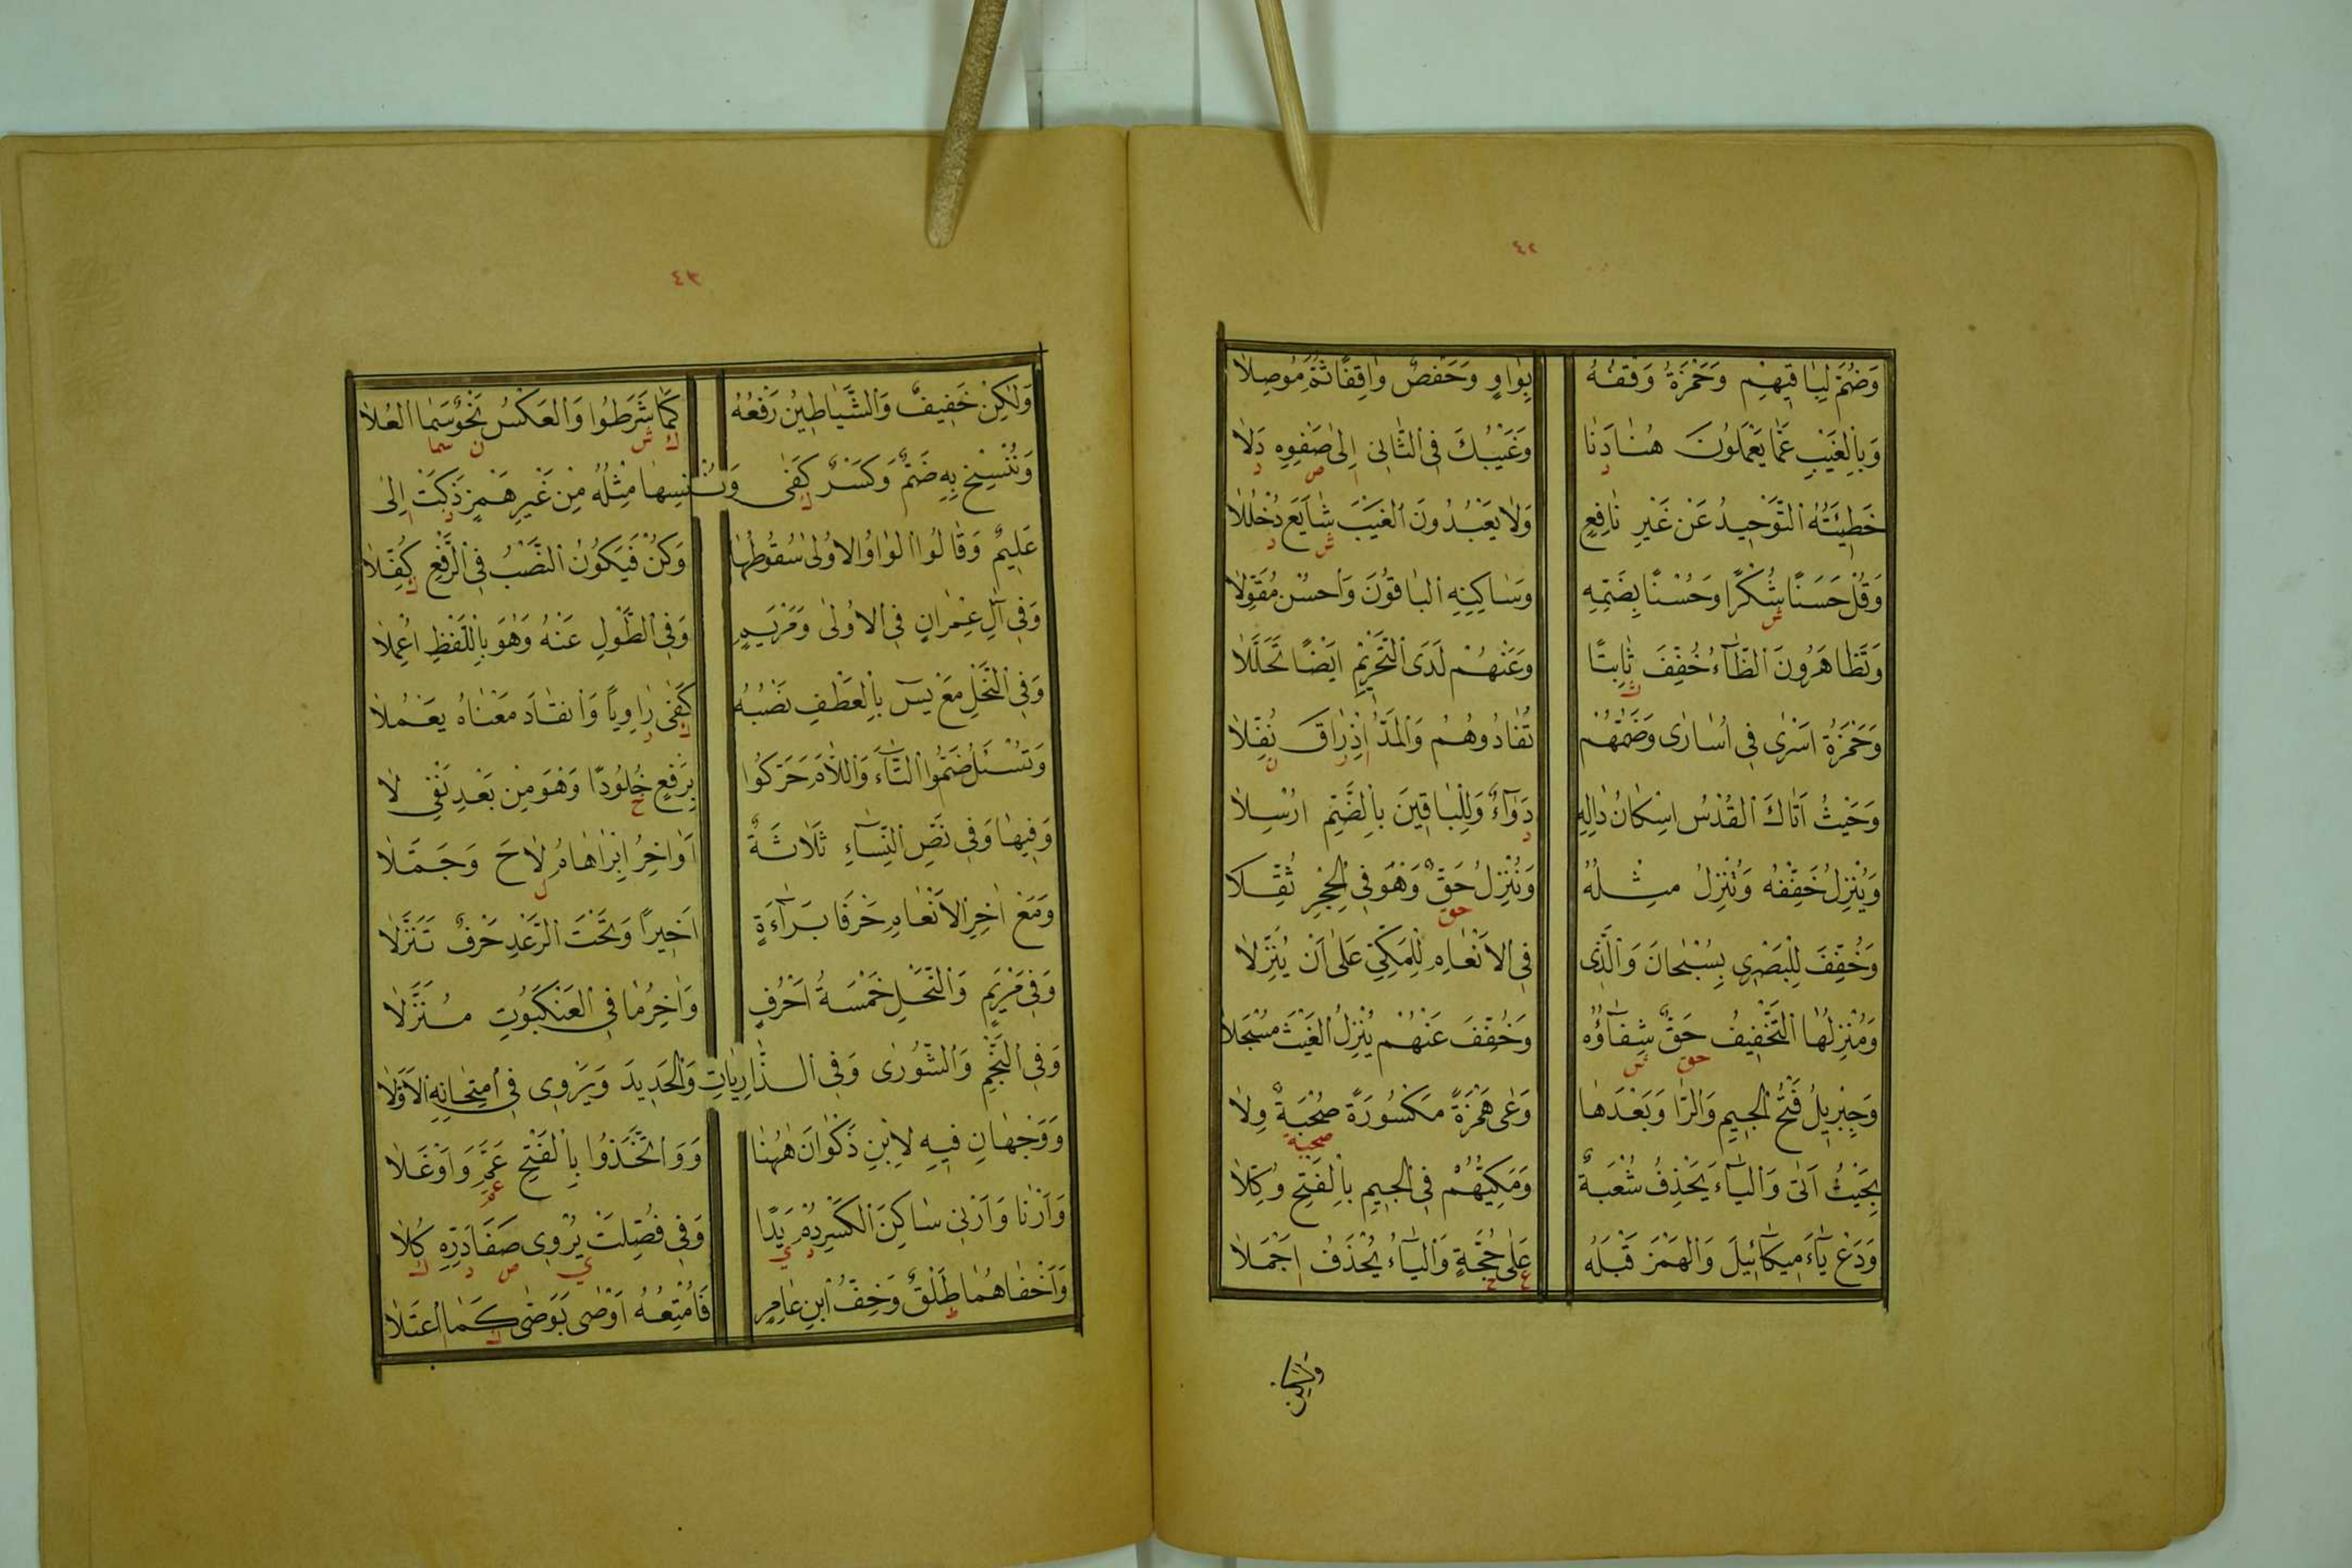 ٤٢
وَضُمَّ لِبَاقِيهِمْ وَحَمْزَةُ وَقْفُهُ بِوَاوٍ وَحَفْصٌ وَاقِفًا ثُمَّ مُوصِلَا
وَبِالْغَيْبِ عَمَّا يَعْمَلُونَ هُنَا دَنَا وَغَيْبُكَ فِي الثَّانِي إِلَى صَفْوِهِ دَلَا
د ا ص د
خَطِيئَتُهُ التَّوْحِيدُ عَنْ غَيْرِ نَافِعٍ وَلَا يَعْبُدُونَ الْغَيْبَ شَايَعَ دُخْلُلَا
ش د
وَقُلْ حَسَنًا شُكْرًا وَحُسْنًا بِضَمِّهِ وَسَاكِنِهِ الْبَاقُونَ وَاحْسُنْ مُقَوِّلَا
ش
وَتَظَّاهَرُونَ الظَّاءُ خُفِّفَ ثَابِتًا وَعَنْهُمْ لَدَى التَّحْرِيمِ أَيْضًا تَحَلَّلَا
ث
وَحَمْزَةُ أَسْرَى فِي أُسَارَى وَضَمُّهُمْ تُفَادُوهُمُ وَالْمَدُّ إِذْ رَاقَ نُفِّلَا
ا ر ن
وَحَيْثُ أَتَاكَ الْقُدْسُ إِسْكَانُ دَالِهِ دَوَاءٌ وَلِلْبَاقِينَ بِالضَّمِّ أُرْسِلَا
د
وَيُنْزِلُ خَفِّفْهُ وَتُنْزِلُ مِثْلُهُ وَنُنْزِلُ حَقٌّ وَهُوَ فِي الْحِجْرِ ثُقِّلَا
حق
وَخُفِّفَ لِلْبَصْرِي بِسُبْحَانَ وَالَّذِي فِي الْأَنْعَامِ لِلْمَكِّي عَلَى أَنْ يُنَزِّلَا
وَمُنْزِلُهَا التَّخْفِيفُ حَقٌّ شِفَاؤُهُ وَخُفِّفَ عَنْهُمْ يُنْزِلُ الْغَيْثَ مُسْجَلَا
حق ش
وَجِبْرِيلُ فَتْحُ الْجِيمِ وَالرَّا وَبَعْدَهَا وَعَى هَمْزَةً مَكْسُورَةً صُحْبَةٌ وِلَا
صحبة
بِحَيْثُ أَتَى وَالْيَاءَ يَحْذِفُ شُعْبَةٌ وَمَكِّيُّهُمْ فِي الْجِيمِ بِالْفَتْحِ وُكِّلَا
وَدَعْ يَاءَ مِيكَائِيلَ وَالْهَمْزَ قَبْلَهُ عَلَى حُجَّةٍ وَالْيَاءُ يُحْذَفُ أَجْمَلَا
ع ح ا
وَلَكِنْ
٤٣
وَلَكِنْ خَفِيفٌ وَالشَّيَاطِينُ رَفْعُهُ كَمَا شَرَطُوا وَالْعَكْسُ نَحْوٌ سَمَا الْعُلَا
ك ش ن سما
وَنُنْسِخْ بِهِ ضَمٌّ وَكَسْرٌ كَفَى وَنُنْسِهَا مِثْلُهُ مِنْ غَيْرِ هَمْزٍ ذَكَتْ إِلَى
ك ذ ا
عَلِيمٌ وَقَالُوا الْوَاوُ الْأُولَى سُقُوطُهَا وَكُنْ فَيَكُونُ النَّصْبُ فِي الرَّفْعِ كُفِّلَا
ك
وَفِي آلِ عِمْرَانٍ فِي الْأُولَى وَمَرْيَمٍ وَفِي الطَّوْلِ عَنْهُ وَهْوَ بِاللَّفْظِ أُعْمِلَا
وَفِي النَّحْلِ مَعْ يس بِالْعَطْفِ نَصْبُهُ كَفَى رَاوِيًا وَانْقَادَ مَعْنَاهُ يَعْمُلَا
ك ر
وَتُسْئَلُ ضَمُّوا التَّاءَ وَاللَّامَ حَرَّكُوا بِرَفْعٍ خُلُودًا وَهْوَ مِنْ بَعْدِ نَفْيِ لَا
خ
وَفِيهَا وَفِي نَصِّ النِّسَاءِ ثَلَاثَةٌ أَوَاخِرُ إِبْرَاهَامَ لَاحَ وَجَمَّلَا
ل
وَمَعْ آخِرِ الْأَنْعَامِ حَرْفَا بَرَاءَةٍ أَخِيرًا وَتَحْتَ الرَّعْدِ حَرْفٌ تَنَزَّلَا
وَفِي مَرْيَمٍ وَالنَّحْلِ خَمْسَةُ أَحْرُفٍ وَآخِرُ مَا فِي الْعَنْكَبُوتِ مُنَزَّلَا
وَفِي النَّجْمِ وَالشُّورَى وَفِي الذَّارِيَاتِ وَالْحَدِيدَ وَيَرْوِي فِي امْتِحَانِهِ الْأَوَّلَا
وَوَجْهَانِ فِيهِ لِابْنِ ذَكْوَانَ هَهُنَا وَوَاتَّخَذُوا بِالْفَتْحِ عَمَّ وَأَوْغَلَا
عم
وَأَرْنَا وَأَرْنِي سَاكِنَ الْكَسْرِ دُمْ يَدًا وَفِي فُصِّلَتْ يُرْوِي صَفَا دَرِّهِ كُلَا
د ي ي ص د ك
وَأَخْفَاهُمَا طَلْقٌ وَخِفُّ ابْنِ عَامِرٍ فَأُمْتِعُهُ أَوْصَى بِوَصَّى كَمَا اعْتَلَا
ط ك ا